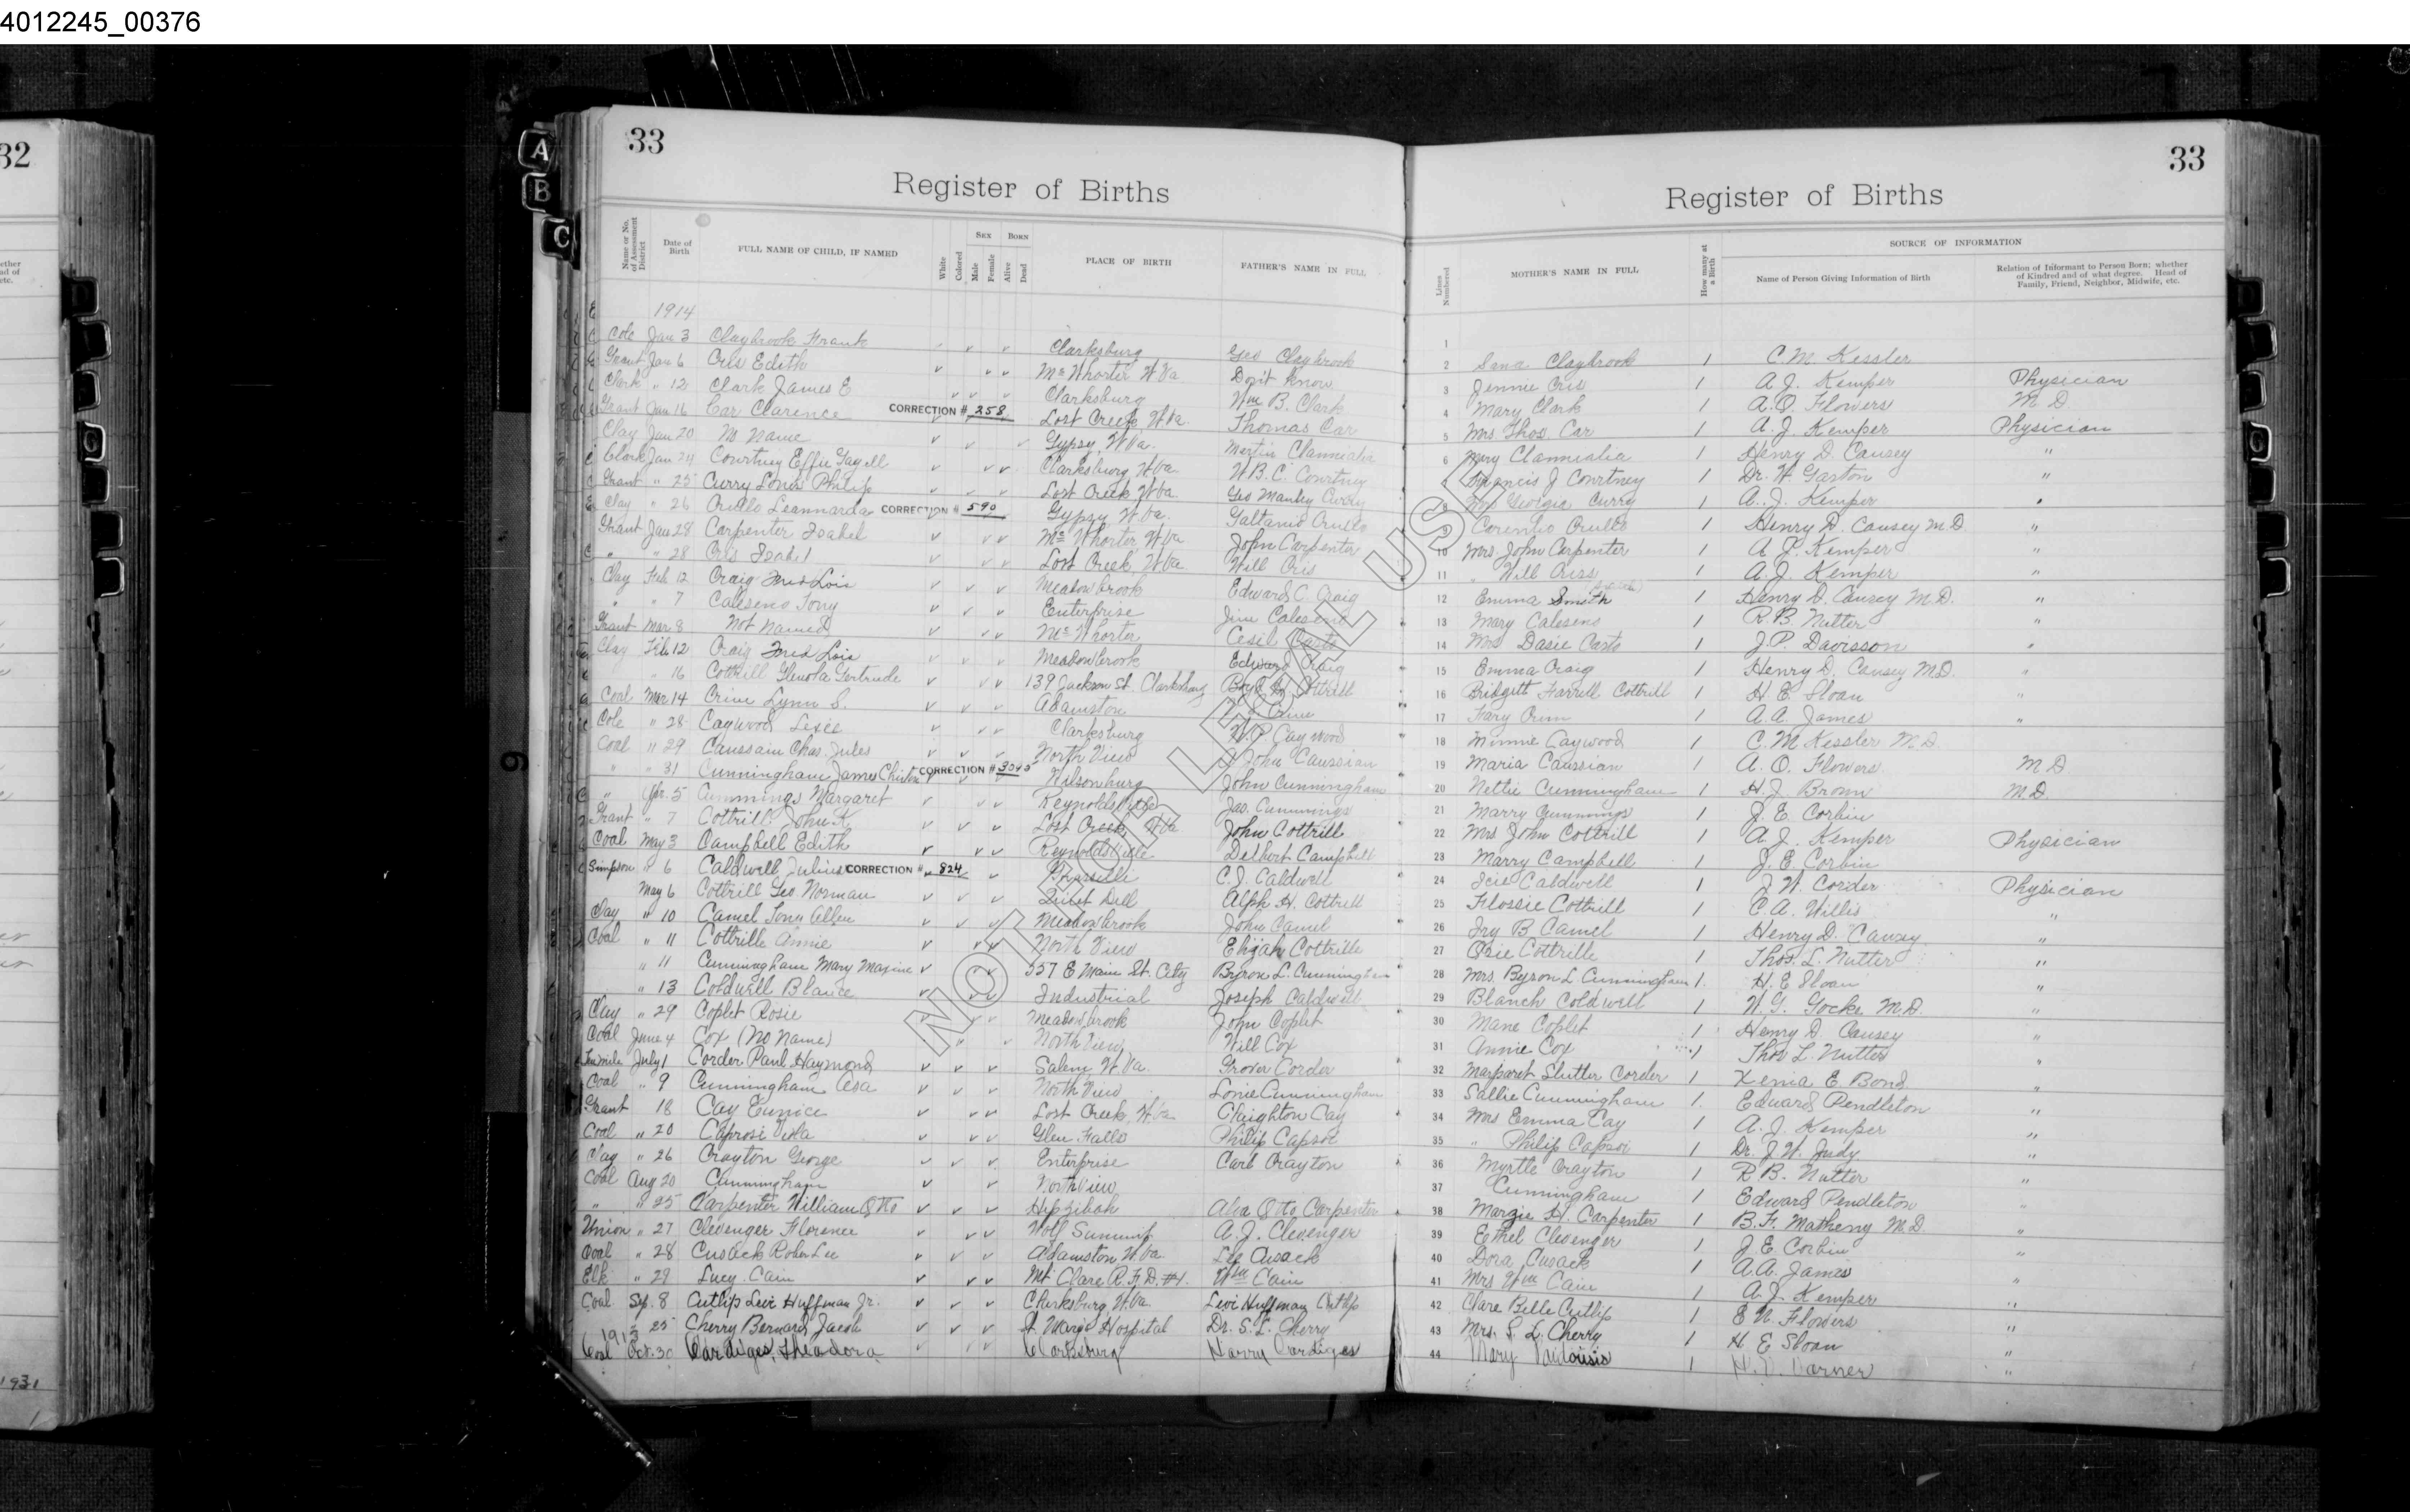 4012245_00376
32
33
33
A
B
C
Register of Births
Register of Births
Name or No. of Assessment District
Date of Birth
FULL NAME OF CHILD, IF NAMED
White
Colored
SEX
Male
Female
BORN
Alive
Dead
PLACE OF BIRTH
FATHER'S NAME IN FULL
Lines Numbered
MOTHER'S NAME IN FULL
How many at a Birth
SOURCE OF INFORMATION
Name of Person Giving Information of Birth
Relation of Informant to Person Born; whether of Kindred and of what degree. Head of Family, Friend, Neighbor, Midwife, etc.
1914
1
Cole Jan 3 Claybrook Frank Clarksburg Geo Claybrook 2 Claybrook 1 C. M. Kessler
Grant Jan 6 Cris Edith McWhorter W Va Don't Know 3 Jennie Cris 1 A. J. Kemper Physician
Clark " 12 Clark James E Clarksburg Wm B. Clark 4 Mary Clark 1 A. O. Flowers M D
Grant Jan 16 Car Clarence CORRECTION # 258 Lost Creek, W Va. Thomas Car 5 Mrs Thos Car 1 A. J. Kemper Physician
Clay Jan 20 No Name Gypsy, W Va. Martin 6 Mary 1 Henry D. Causey "
Clark Jan 24 Courtney Effie Clarksburg W Va W. B. C. Courtney Francis J Courtney 1 Dr. W. Gaston "
Grant " 25 Curry Philip Lost Creek W Va. Geo Manley Curry Georgia Curry 1 A. J. Kemper
Clay " 26 CORRECTION # 590 Gypsy, W Va. 9 1 Henry D. Causey M. D. "
Grant Jan 28 Carpenter Isabel McWhorter, W Va John Carpenter 10 Mrs. John Carpenter 1 A. J. Kemper "
" " 28 Cris Isabel Lost Creek, W Va. Will Cris 11 " Will Criss 1 A. J. Kemper "
Clay Feb 12 Craig Lois Meadowbrook Edward C. Craig 12 Emma Smith 1 Henry D. Causey M. D. "
" " 7 Caleseno Tony Enterprise Jim Caleseno 13 Mary Caleseno 1 R. B. Nutter "
Grant Mar 8 Not Named McWhorter Cesil Carto 14 Mrs Dasie Carto 1 J. P. Davisson "
Clay Feb. 12 Craig Lois Meadowbrook Edward Craig 15 Emma Craig 1 Henry D. Causey M. D. "
" 16 Cottrill Glenola Gertrude 139 Jackson St. Clarksburg Boyd Cottrill 16 Bridgitt Farrell Cottrill 1 H. E. Sloan "
Coal Mar 14 Crim Lynn S. Adamston Crim 17 Crim 1 A. A. James "
Cole " 28 Caywood Lexie Clarksburg W. P. Caywood 18 Minnie Caywood 1 C. M. Kessler M. D.
Coal " 29 Caussain Chas. Jules North View John Caussian 19 Maria Caussian 1 A. O. Flowers M D
" " 31 Cunningham James CORRECTION # Wilsonburg John Cunningham 20 Nettie Cunningham 1 H. J. Brown M. D.
" Apr. 5 Cummings Margaret Reynoldsville Jas. Cummings 21 Marry Cummings 1 J. E. Corbin
Grant " 7 Cottrill John K. Lost Creek W Va John Cottrill 22 Mrs John Cottrill 1 A. J. Kemper Physician
Coal May 3 Campbell Edith Reynoldsville Delbert Campbell 23 Marry Campbell 1 J. E. Corbin
Simpson " 6 Caldwell Julius CORRECTION # 824 C. J. Caldwell 24 Icie Caldwell 1 J. W. Corder Physician
May 6 Cottrill Geo. Norman Quiet Dell Alph H. Cottrill 25 Flossie Cottrill 1 C. A. Willis "
Clay " 10 Camel Allen Meadowbrook John Camel 26 Ivy B Camel 1 Henry D. Causey "
Coal " 11 Cottrille Annie North View Elijah Cottrille 27 Osie Cottrille 1 Thos. L. Nutter "
" 11 Cunningham Mary Maxine 557 E Main St. City Byron L. Cunningham 28 Mrs. Byron L. Cunningham 1. H. E Sloan "
" 13 Coldwell Blance Industrial Joseph Caldwell 29 Blanch Coldwell 1 W. G. Gocke M. D. "
Clay " 29 Coplet Rosie Meadowbrook John Coplet 30 Mane Coplet 1 Henry D Causey "
Coal June 4 Cox (No Name) North View Will Cox 31 Annie Cox 1 Thos L. Nutter "
Tenmile July 1 Corder Paul Haymond Salem W. Va. Grover Corder 32 Margaret Slutter Corder 1 Xenia E. Bond "
Coal " 9 Cunningham Asa North View Lonie Cunningham 33 Sallie Cunningham 1. Edward Pendleton "
Grant 18 Cay Eunice Lost Creek, W. Va Cleighton Cay 34 Mrs Emma Cay 1 A. J. Kemper "
Coal " 20 Caprosi Viola Glen Falls Philip Capsoi 35 " Philip Capsoi 1 Dr. J. W. Judy "
Clay " 26 Crayton George Enterprise Carl Crayton 36 Myrtle Crayton 1 R. B. Nutter "
Coal Aug 20 Cunningham North View 37 Cunningham 1 Edward Pendleton
" " 25 Carpenter William Otto Hepzibah Alva Otto Carpenter 38 Margie H. Carpenter 1 B. F. Matheny M. D "
Union " 27 Clevenger Florence Wolf Summit A. J. Clevenger 39 Ethel Clevenger 1 J. E. Corbin "
Coal " 28 Cusack Robert Lee Adamston W. Va. Lee Cusack 40 Dora Cusack 1 A. A. James "
Elk " 29 Lucy Cain Mt Clare R. F. D. #1. Wm Cain 41 Mrs Wm Cain 1 A. J. Kemper "
Coal Sep. 8 Cutlip Levi Huffman Jr. Clarksburg, W. Va. Levi Huffman Cutlip 42 Clare Belle Cutlip 1 E. N. Flowers "
" 25 Cherry Bernard Jacob St Marys Hospital Dr. S. L. Cherry 43 Mrs. S. L. Cherry 1 H. E Sloan "
1913
Coal Oct. 30 Cardiges, Theodora Clarksburg Harry Cardiges 44 Mary 1 "
NOT FOR LEGAL USE
1931